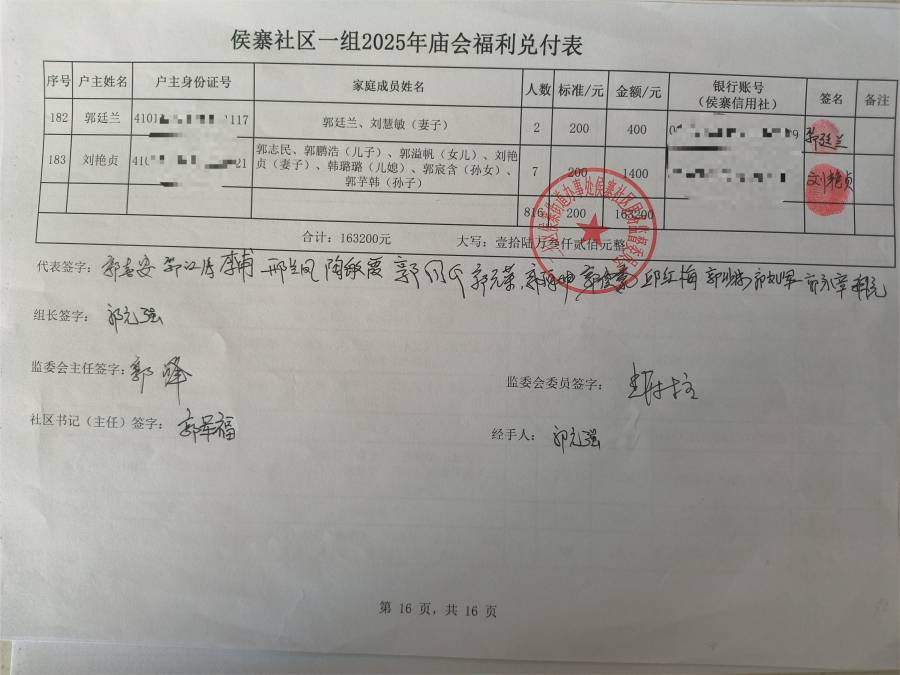 侯寨社区一组2025年庙会福利兑付表
序号 户主姓名 户主身份证号 家庭成员姓名 人数 标准/元 金额/元 银行账号（侯寨信用社） 签名 备注
182 郭廷兰 4101 117 郭廷兰、刘慧敏（妻子） 2 200 400 9 郭廷兰
183 刘艳贞 410 21 郭志民、郭鹏浩（儿子）、郭溢帆（女儿）、刘艳贞（妻子）、韩璐璐（儿媳）、郭宸含（孙女）、郭芓韩（孙子） 7 200 1400 刘艳贞
816 200 163200
合计：163200元 大写：壹拾陆万叁仟贰佰元整
代表签字： 李甫 邢兰凤 陶敏霞 郭元荣 邱红梅
组长签字： 郭元强
监委会主任签字： 郭峰
监委会委员签字：
社区书记（主任）签字： 郭军福
经手人： 郭元强
第 16 页，共 16 页